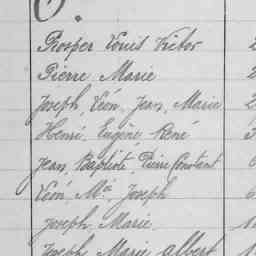 O.
Prosper Louis Victor 2
Pierre Marie 2
Joseph, Léon, Jean, Marie 2
Henri, Eugène, René 3
Jean, Baptiste, Pierre Constant
Léon, Mie, Joseph
Joseph, Marie,
Joseph, Marie Albert